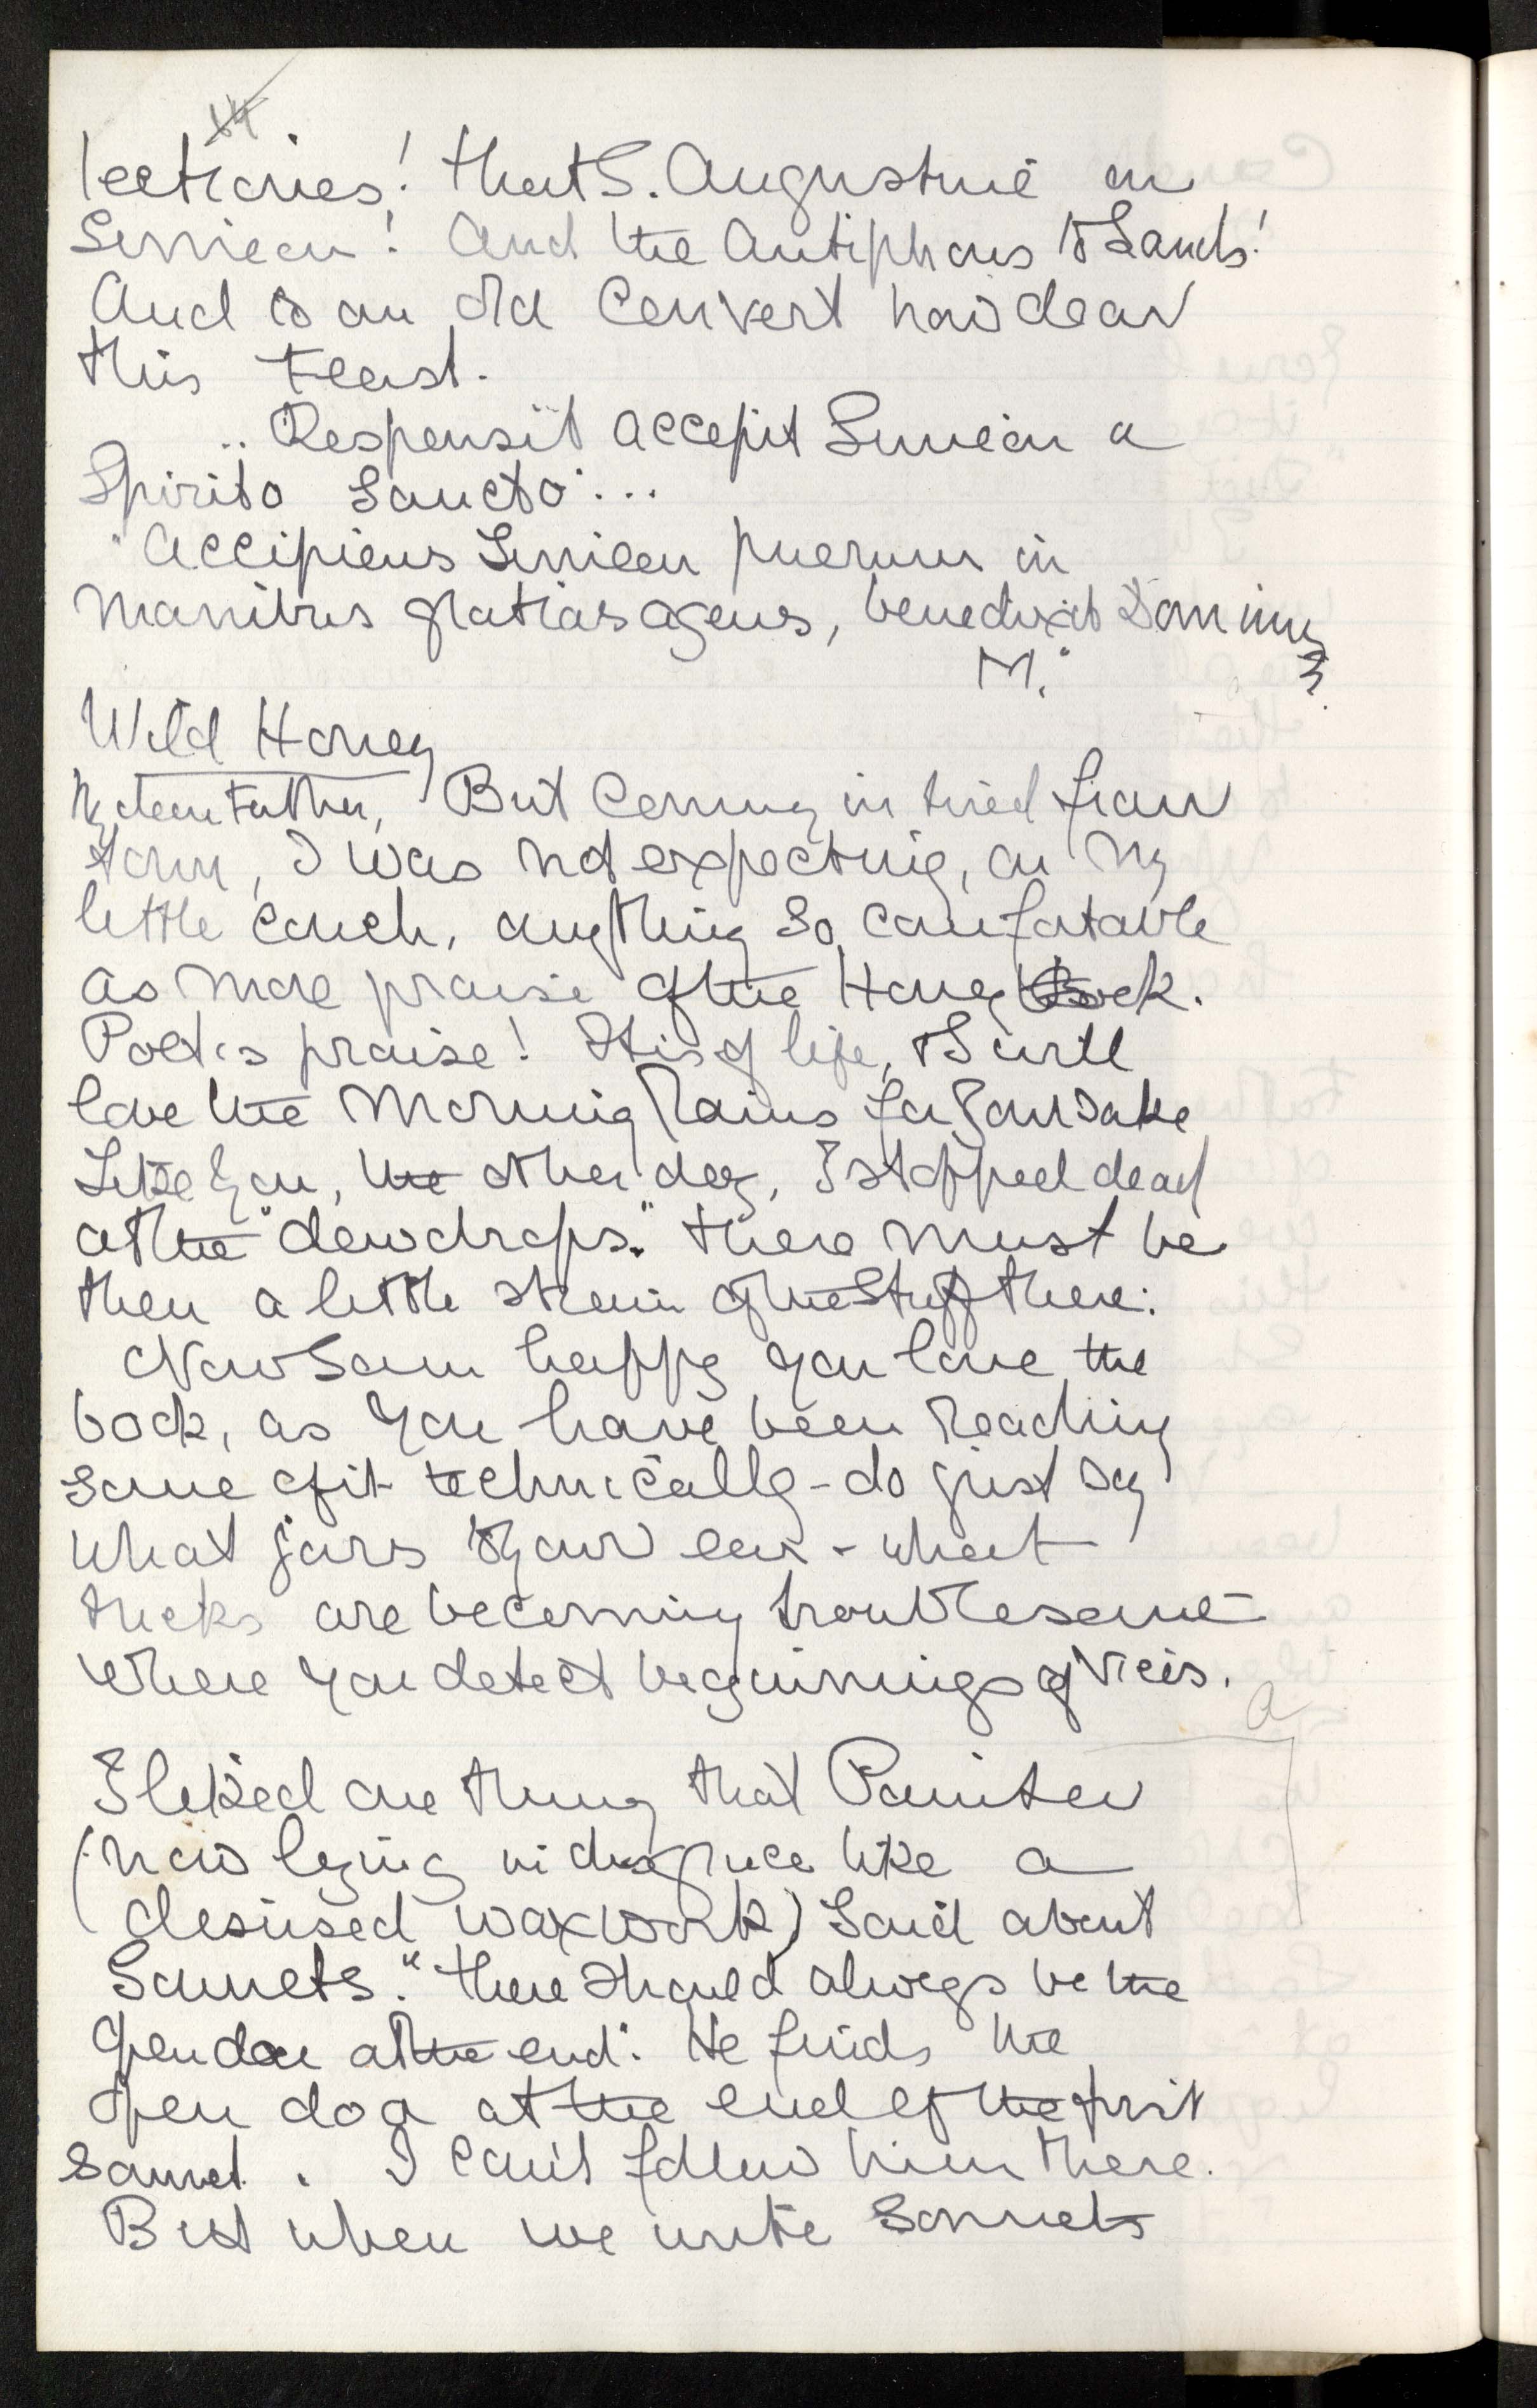 lections! that S. Augustine on
Simeon! And the Antiphons to Lauds!
And to an old Convert how dear
this Feast.
.. Responsit accepit Simeon a
Spirito Sancto"...
"Accipiens Simeon puerum in
manibus gratias agens, benedixit Dominum
M."
Wild Honey
My dear Father, But coming in tired from
town, I was not expecting, on my
little couch, anything so comfortable
as more praise of the Honey Book.
Poet's praise! It is of life, & I will
love the Morning Rains for your sake
Like you, the other day, I stopped dead
at the "dewdrops." there must be
then a little strain of the stuff there.
Now I am happy you love the
book, as you have been reading
some of it technically - do just say
what jars to your ear - what
tricks are becoming troublesome
where you detect beginnings of vices.
a
I liked one thing that Painter
(now lying in disgrace like a
disused waxwork) said about
Sonnets. "there should always be the
open door at the end". He finds the
open door at the end of the first
sonnet. I can't follow him there.
But when we write sonnets